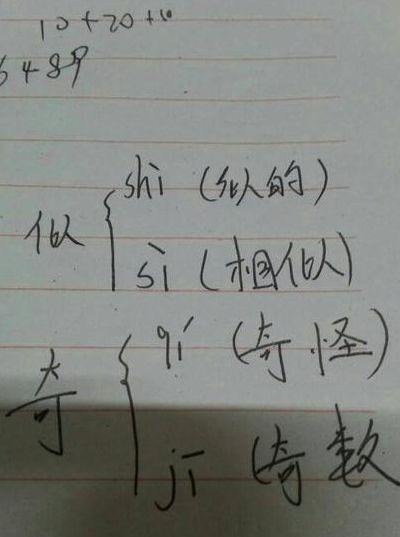 10+20+10
shì (似的)
似
sì (相似)
qí (奇怪)
奇
jī (奇数